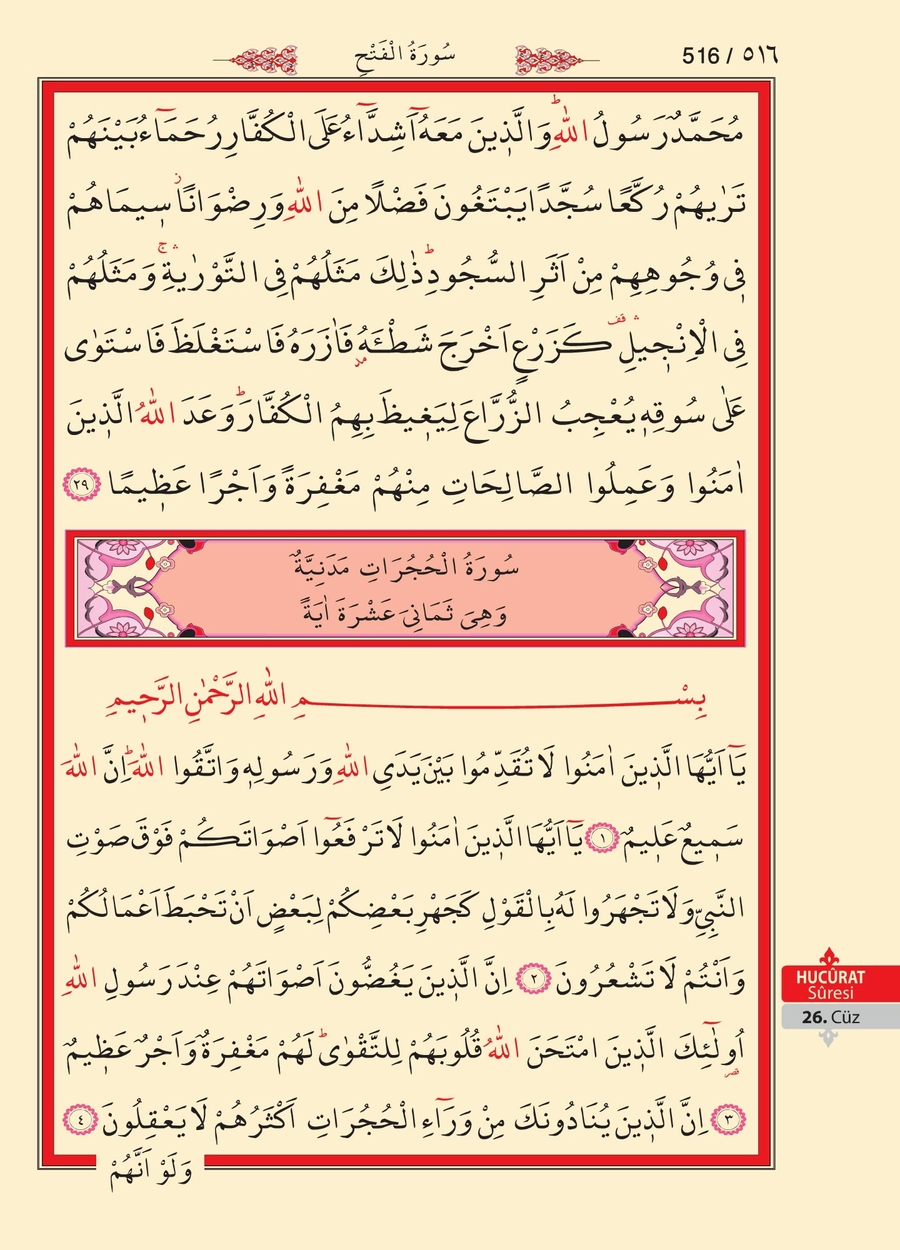 516 / ٥١٦
سُورَةُ الْفَتْحِ
مُحَمَّدٌ رَسُولُ اللّٰهِۜ وَالَّذ۪ينَ مَعَهُٓ اَشِدَّٓاءُ عَلَى الْكُفَّارِ رُحَمَٓاءُ بَيْنَهُمْ
تَرٰيهُمْ رُكَّعًا سُجَّدًا يَبْتَغُونَ فَضْلًا مِنَ اللّٰهِ وَرِضْوَانًاۘ س۪يمَاهُمْ
ف۪ي وُجُوهِهِمْ مِنْ اَثَرِ السُّجُودِۜ ذٰلِكَ مَثَلُهُمْ فِي التَّوْرٰيةِۚۛ وَمَثَلُهُمْ
فِي الْاِنْج۪يلِ۠ۛ كَزَرْعٍ اَخْرَجَ شَطْـَٔهُ فَاٰزَرَهُ فَاسْتَغْلَظَ فَاسْتَوٰى
عَلٰى سُوقِه۪ يُعْجِبُ الزُّرَّاعَ لِيَغ۪يظَ بِهِمُ الْكُفَّارَۜ وَعَدَ اللّٰهُ الَّذ۪ينَ
اٰمَنُوا وَعَمِلُوا الصَّالِحَاتِ مِنْهُمْ مَغْفِرَةً وَاَجْرًا عَظ۪يمًا ﴿٢٩﴾
سُورَةُ الْحُجُرَاتِ مَدَنِيَّةٌ
وَهِيَ ثَمَانِيَ عَشْرَةَ اٰيَةً
بِسْمِ اللّٰهِ الرَّحْمٰنِ الرَّح۪يمِ
يَٓا اَيُّهَا الَّذ۪ينَ اٰمَنُوا لَا تُقَدِّمُوا بَيْنَ يَدَيِ اللّٰهِ وَرَسُولِه۪ وَاتَّقُوا اللّٰهَۜ اِنَّ اللّٰهَ
سَم۪يعٌ عَل۪يمٌ ﴿١﴾ يَٓا اَيُّهَا الَّذ۪ينَ اٰمَنُوا لَا تَرْفَعُٓوا اَصْوَاتَكُمْ فَوْقَ صَوْتِ
النَّبِيِّ وَلَا تَجْهَرُوا لَهُ بِالْقَوْلِ كَجَهْرِ بَعْضِكُمْ لِبَعْضٍ اَنْ تَحْبَطَ اَعْمَالُكُمْ
وَاَنْتُمْ لَا تَشْعُرُونَ ﴿٢﴾ اِنَّ الَّذ۪ينَ يَغُضُّونَ اَصْوَاتَهُمْ عِنْدَ رَسُولِ اللّٰهِ
اُو۬لٰٓئِكَ الَّذ۪ينَ امْتَحَنَ اللّٰهُ قُلُوبَهُمْ لِلتَّقْوٰىۜ لَهُمْ مَغْفِرَةٌ وَاَجْرٌ عَظ۪يمٌ
﴿٣﴾ اِنَّ الَّذ۪ينَ يُنَادُونَكَ مِنْ وَرَٓاءِ الْحُجُرَاتِ اَكْثَرُهُمْ لَا يَعْقِلُونَ ﴿٤﴾
وَلَوْ اَنَّهُمْ
HUCÛRAT
Sûresi
26. Cüz